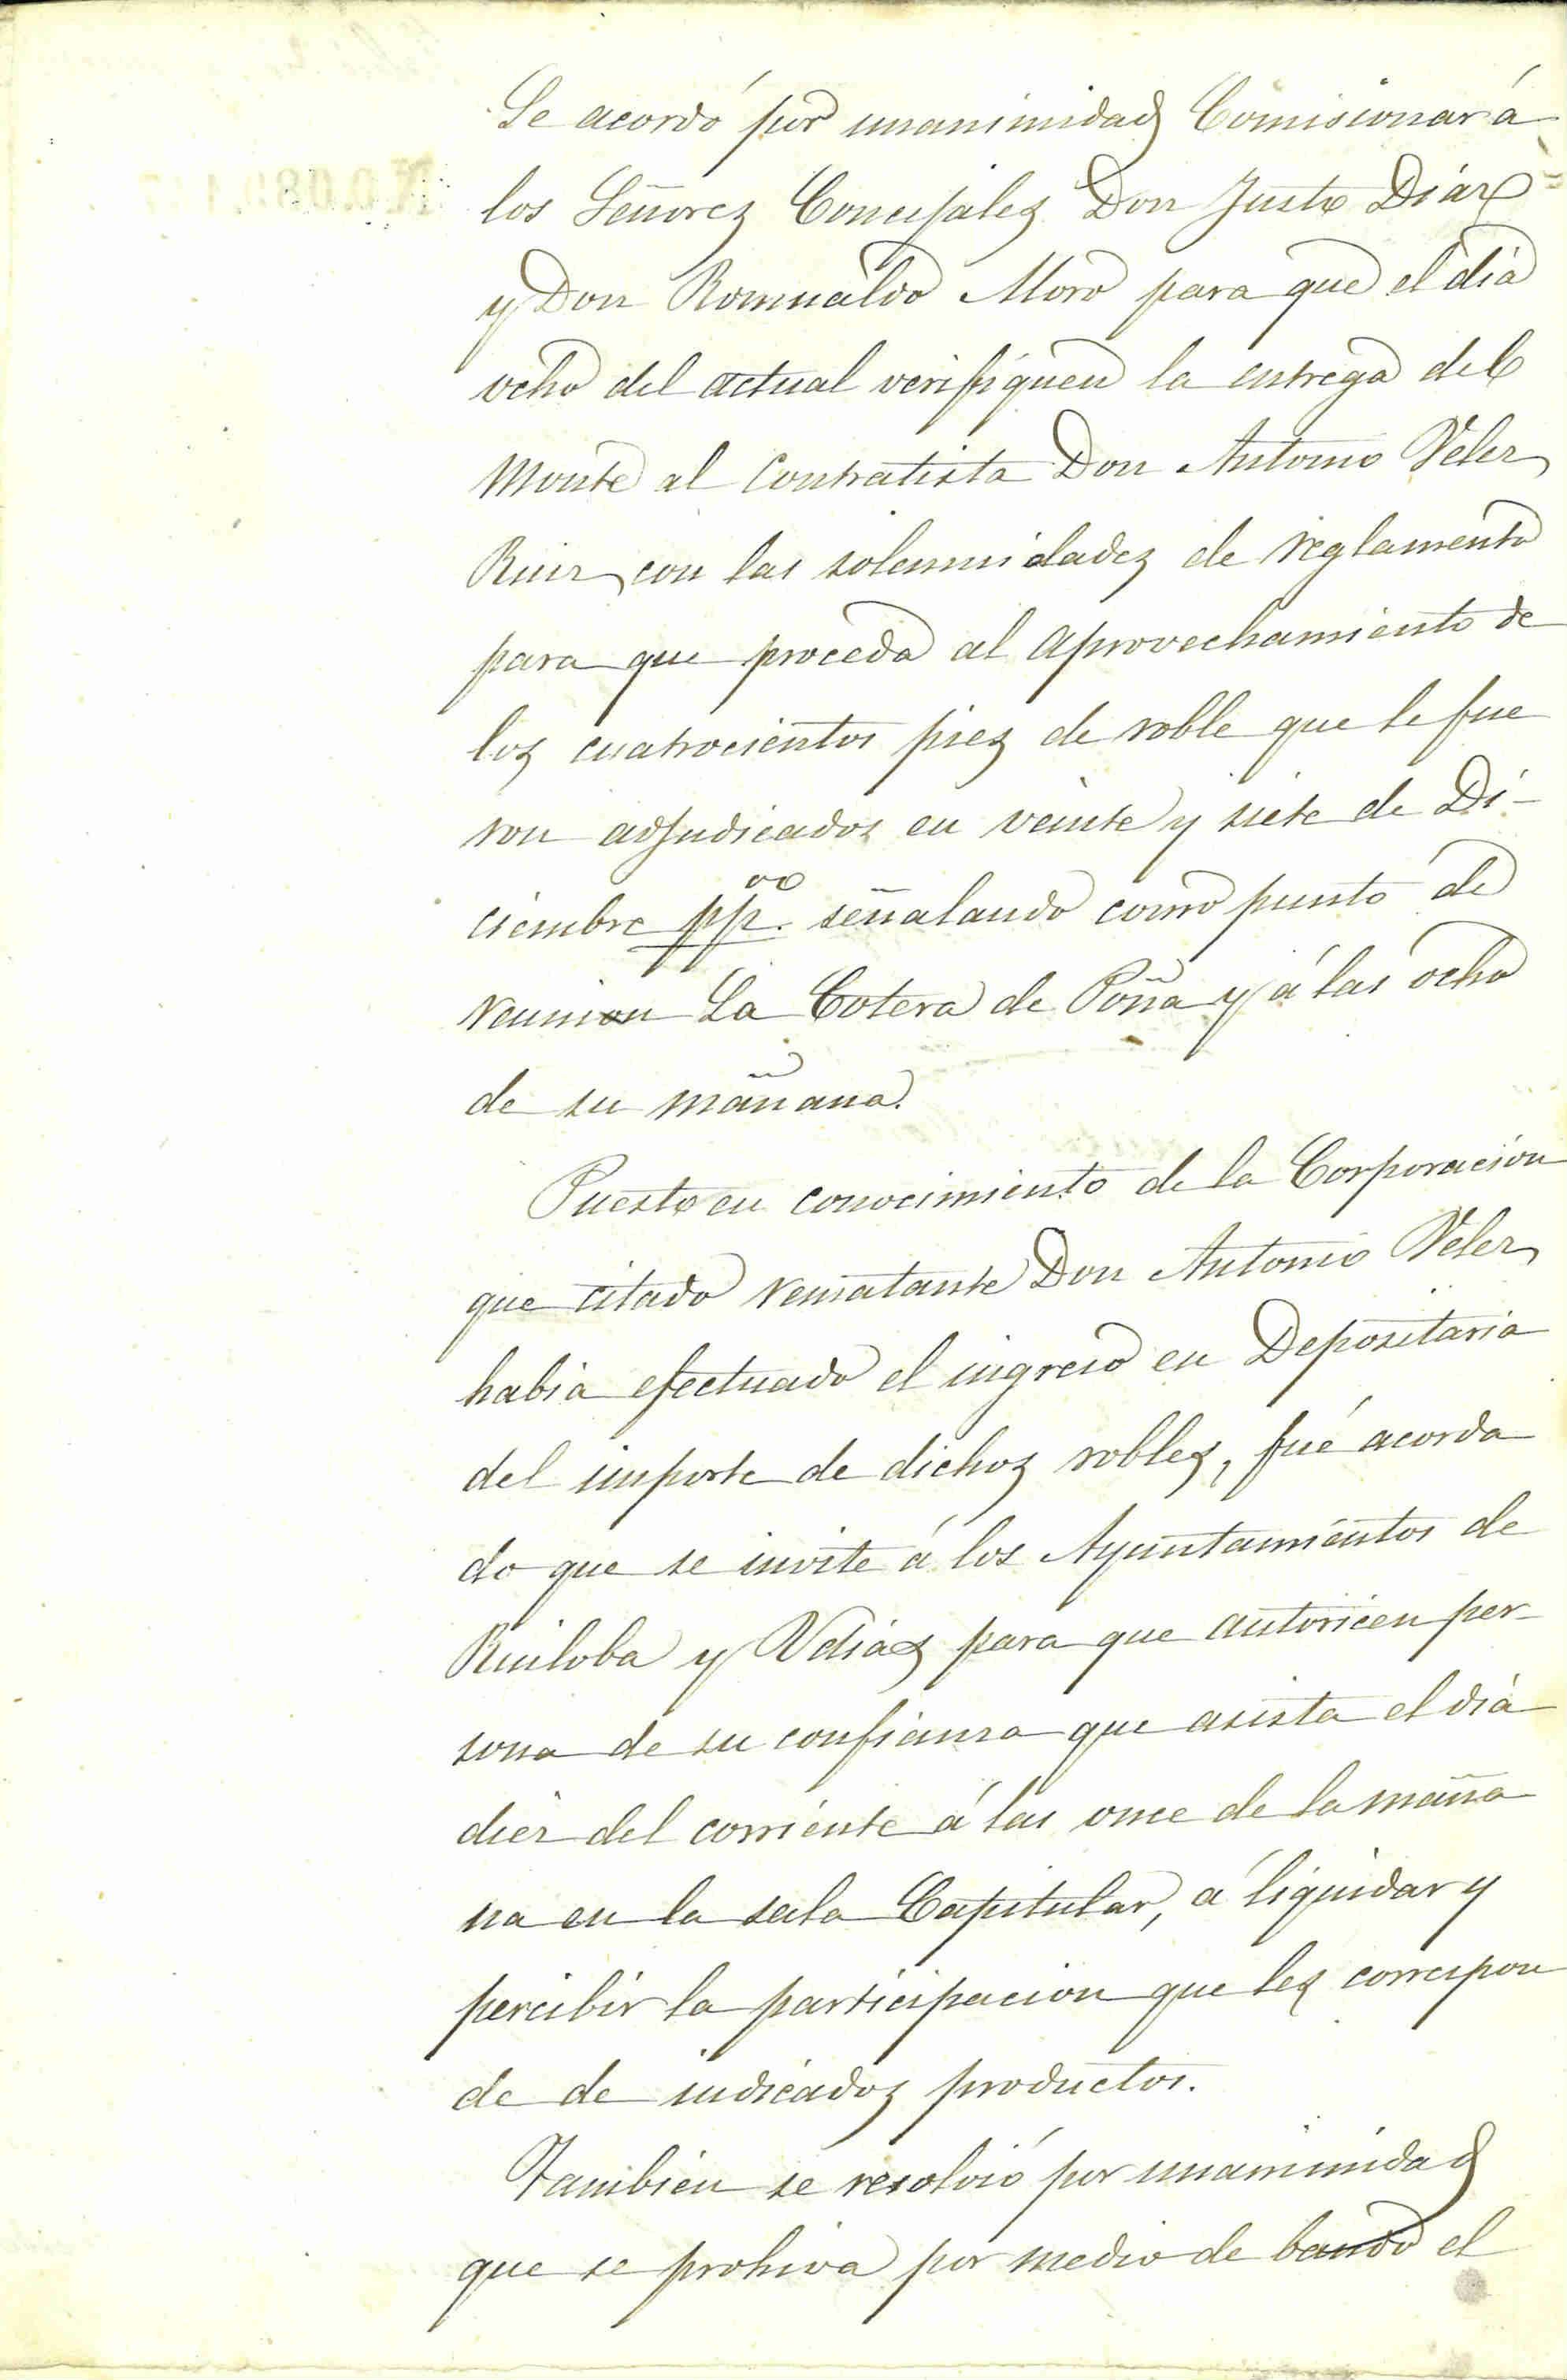 Se acordó por unanimidad Comisionar á
los Señores Concejales Don Justo Diáz
y Don Romualdo Moro para que el dia
ocho del actual verifiquen la entrega del
Monte al Contratista Don Antonio Velez
Ruiz con las solemnidades de reglamento
para que proceda al aprovechamiento de
los cuatrocientos pies de roble que le fue
ron adjudicados en veinte y siete de Di-
ciembre pp.º señalando como punto de
reunion La Cotera de Poña y á las ocho
de su mañana.
Puesto en conocimiento de la Corporacion
que citado rematante Don Antonio Velez
habia efectuado el ingreso en Depositaria
del importe de dichos robles, fué acorda
do que se invite á los Ayuntamientos de
Ruiloba y Udiás para que autoricen per-
sona de su confianza que asista el dia
diez del corriente á las once de la maña
na en la sala Capitular, á liquidar y
percibir la participacion que les correspon
de de indicados productos.
Tambien se resolvió por unanimidad
que se prohiva por medio de bando el